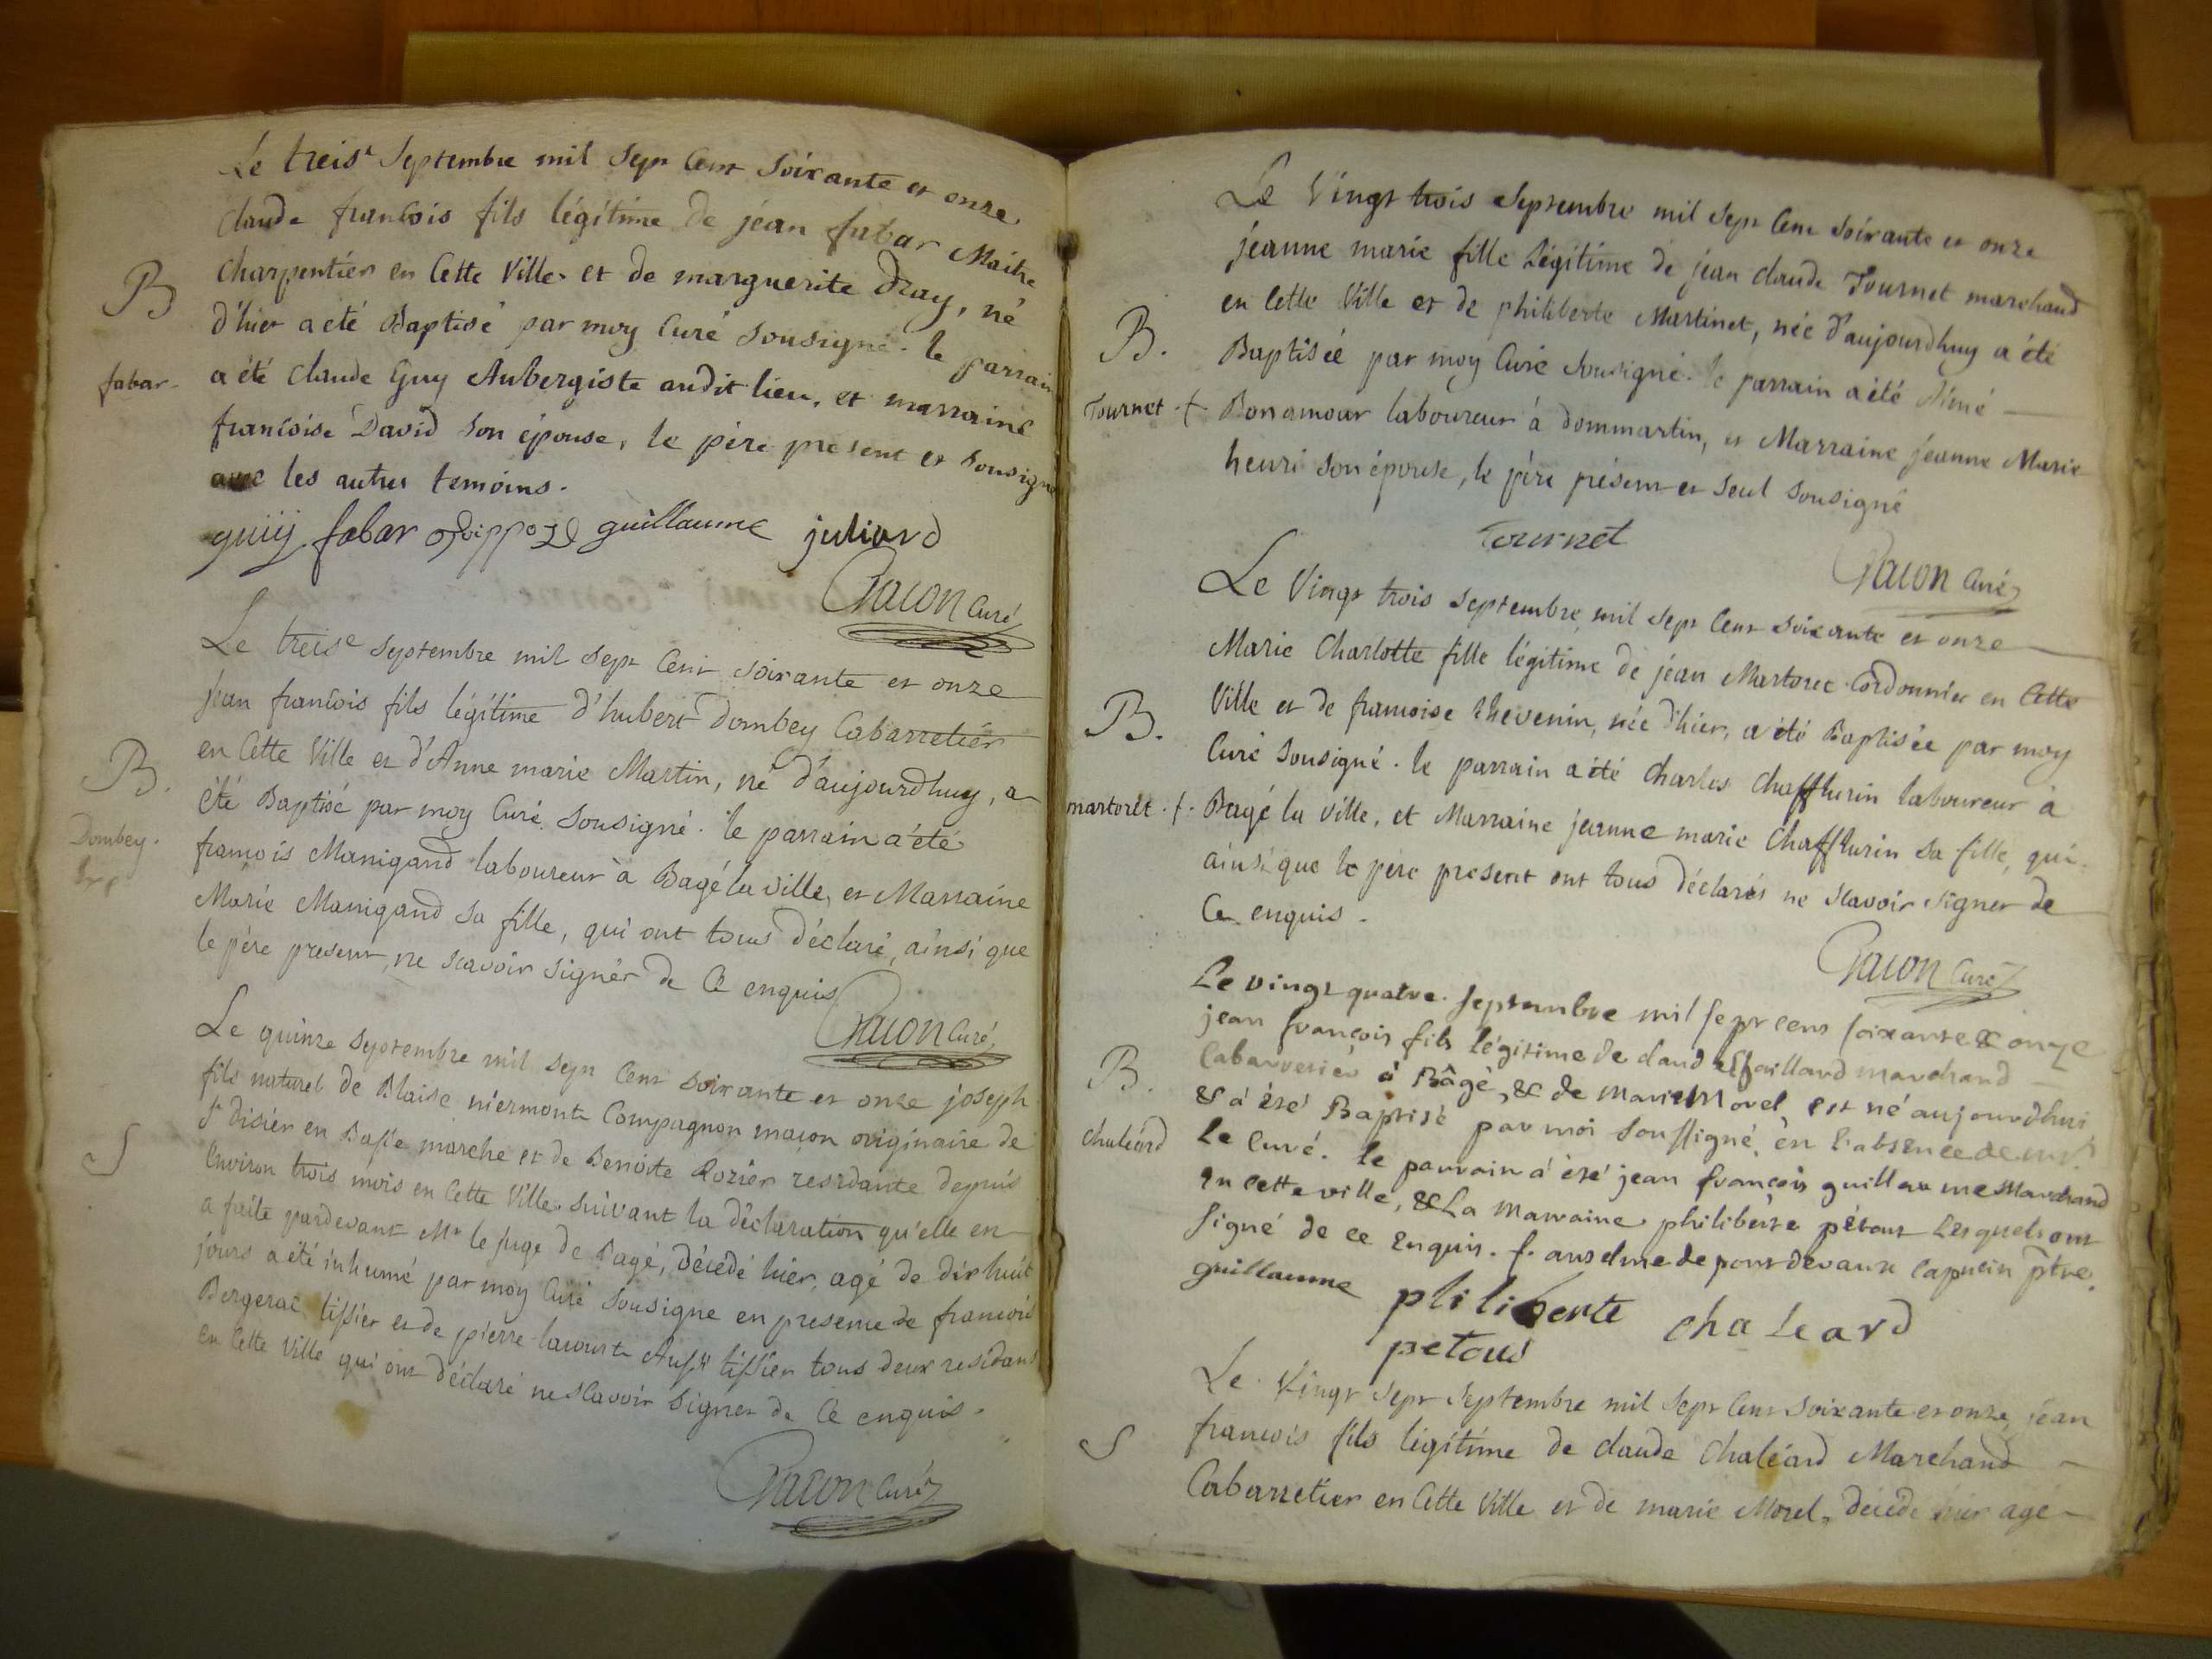 Le treise Septembre mil Sept Cent Soixante et onze
Claude francois fils légitime de jéan fabar Maitre
Charpentier en Cette Ville et de marguerite Dray, né
B
d'hier a eté Baptisé par moy Curé Sousigné. le parrain
fabar.
a été Claude Guy Aubergiste audit lieu, et marraine
francoise David Son épouse, le pére present et Sousigné
avec les autres temoins.
guiij fabar guillaume juliard
Gacon Curé
Le treise Septembre mil Sept Cent Soixante et onze
Jean francois fils légitime d'hubert Dombey Cabarretiér
en Cette Ville et d'Anne marie Martin, né d'aujourdhuy, a
B.
été Baptisé par moy Curé Sousigné. le parrain a été
Dombey.
francois Manigand laboureur à Bagé la ville, et Marraine
Marie Manigand Sa fille, qui ont tous déclaré, ainsi que
le pére present, ne scavoir signér de Ce enquis
Gacon Curé
Le quinze Septembre mil Sept Cent Soixante et onze joseph
fils naturel de Blaise niermont Compagnon macon originaire de
St disiér en Basse marche et de Benoite Roziér residante depuis
S
Environ trois mois en Cette Ville suivant la déclaration qu'elle en
a faite pardevant Mr le juge de Bagé, décédé hier, agé de dix huit
jours a été inhumé par moy Curé Sousigné en presence de francois
Bergerac tissier et de pierre lacourte Aussi tissier tous deux residans
en Cette Ville qui ont déclaré ne scavoir signer de Ce enquis.
Gacon Curé
Le Vingt trois Septembre mil Sept Cent Soixante et onze
jeanne marie fille Légitime de jean claude Tournet marchand
en Cette Ville et de philiberte Martinet, née d'aujourdhuy a été
B.
Baptisée par moy Curé Sousigné. le parrain a été Aimé
Tournet. +
Bonamour laboureur à dommartin, et Marraine jeanne Marie
henri son épouse, le pére présent et Seul Sousigné
Tournet
Gacon Curé
Le Vingt trois Septembre mil Sept Cent Soixante et onze
Marie Charlotte fille légitime de jéan Martoret Cordonnier en Cette
Ville et de francoise thevenin, née d'hier, a été Baptisée par moy
B.
Curé Sousigné. le parrain a été Charles Chafflurin laboureur à
martoret. +.
Bagé la Ville, et Marraine jeanne marie Chafflurin Sa fille, qui
ainsi que le pére present ont tous déclarés ne scavoir signer de
Ce enquis.
Gacon Curé
Le vingt quatre Septembre mil Sept cens soixante & onze
jean francois fils légitime de claude Chaillard marchand
Cabarretiér à Bâgé, & de Marie Morel, est né aujourdhui
B.
& a été Baptisé par moi Soussigné, en l'absence de mr
Chaléard
Le Curé. le parrain a été jean francois guillaume Marchand
en cette ville, & La Marraine philiberte pétout Lesquels ont
Signé de ce Enquis. f. anselme de pont devaux Capucin ptre.
guillaume philiberte chaleard
petout
Le Vingt Sept Septembre mil Sept Cent Soixante et onze, jean
S
francois fils légitime de claude Chaléard Marchand
Cabarretier en Cette Ville et de marie Morel, décédé hier agé